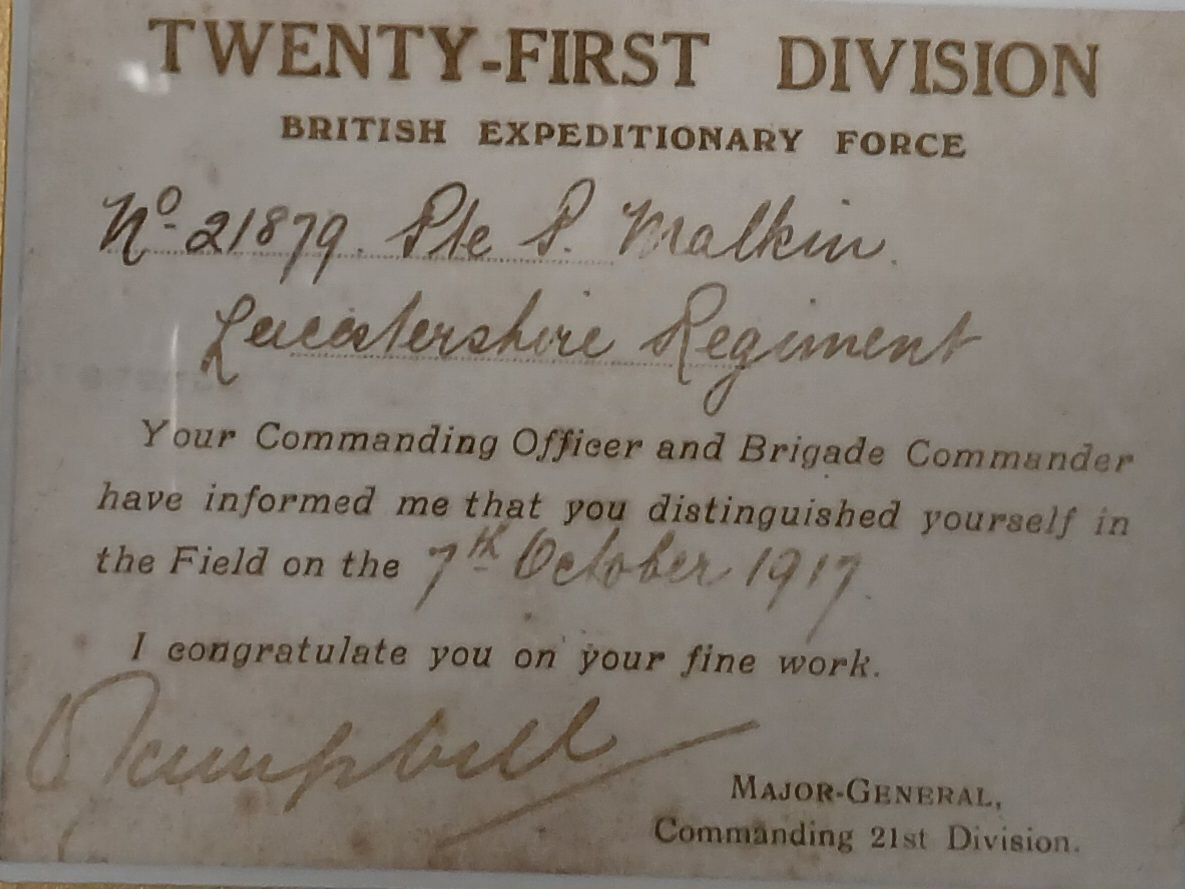 TWENTY-FIRST DIVISION
BRITISH EXPEDITIONARY FORCE
No. 21879. Pte P. Malkin.
Leicestershire Regiment
Your Commanding Officer and Brigade Commander
have informed me that you distinguished yourself in
the Field on the 7th October 1917.
I congratulate you on your fine work.
Campbell
MAJOR-GENERAL,
Commanding 21st Division.